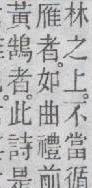 林之上。不當循
雁者。如曲禮前
黃鵠者。此詩是